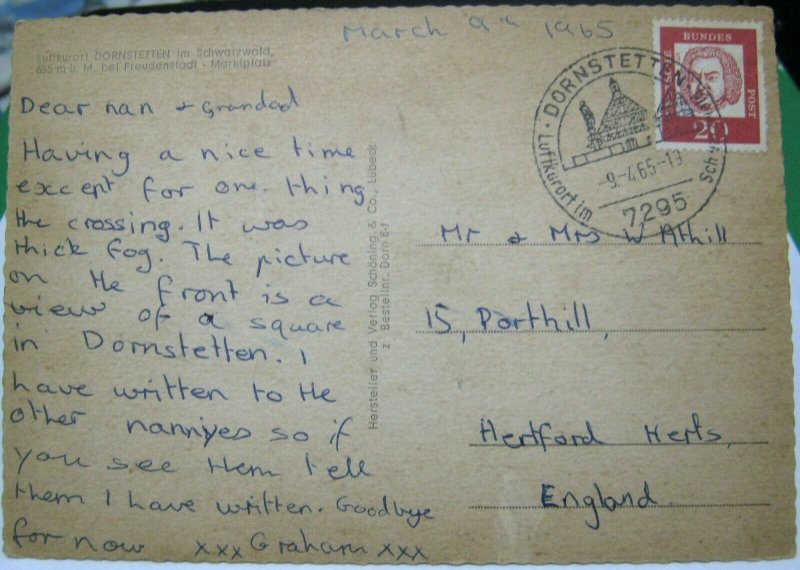 March 9th 1965
Luftkurort DORNSTETTEN im Schwarzwald,
655 m ü. M. bei Freudenstadt - Marktplatz
Dear nan & Grandad
Having a nice time
except for one thing
the crossing. It was
thick fog. The picture
on the front is a
view of a square
in Dornstetten. I
have written to the
other nannyes so if
you see them tell
them I have written. Goodbye
for now xxx Graham xxx
Hersteller und Verlag Schöning & Co., Lübeck
z Bestellnr. Dorn 8-1
DEUTSCHE
BUNDES
POST
20
DORNSTETTEN
Luftkurort im
-9.-4.65-19
7295
Mr & Mrs W Athill
15, Porthill,
Hertford Herts,
England